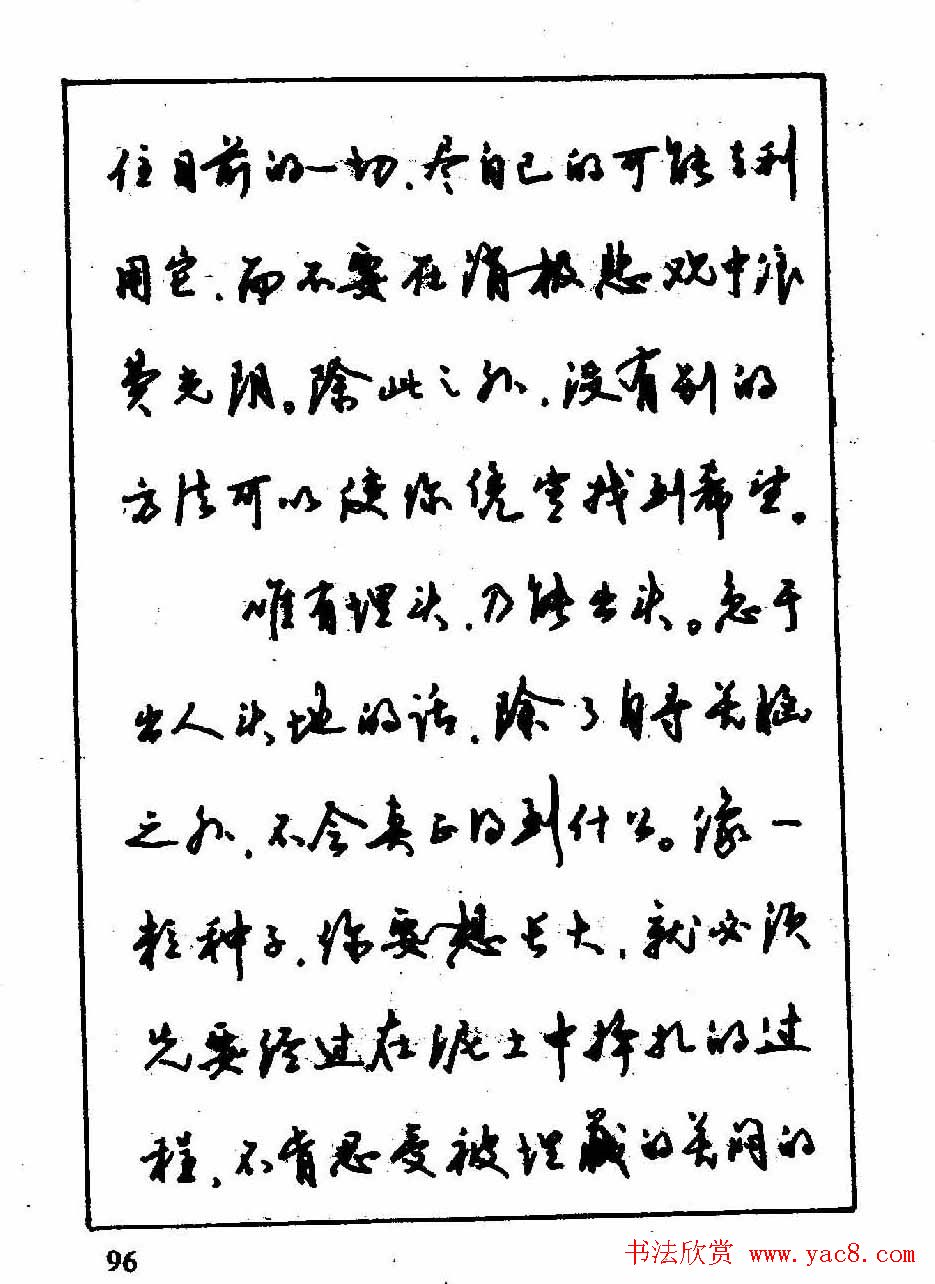 住目前的一切，尽自己的可能去利
用它，而不要在消极悲观中浪
费光阴。除此之外，没有别的
方法可以使你凭空找到希望。
唯有埋头，乃能出头。急于
出人头地的话，除了自寻苦恼
之外，不会真正得到什么。像一
粒种子，你要想长大，就必须
先要经过在泥土中挣扎的过
程，不肯忍受被埋藏的苦闷的
96
书法欣赏 www.yac8.com